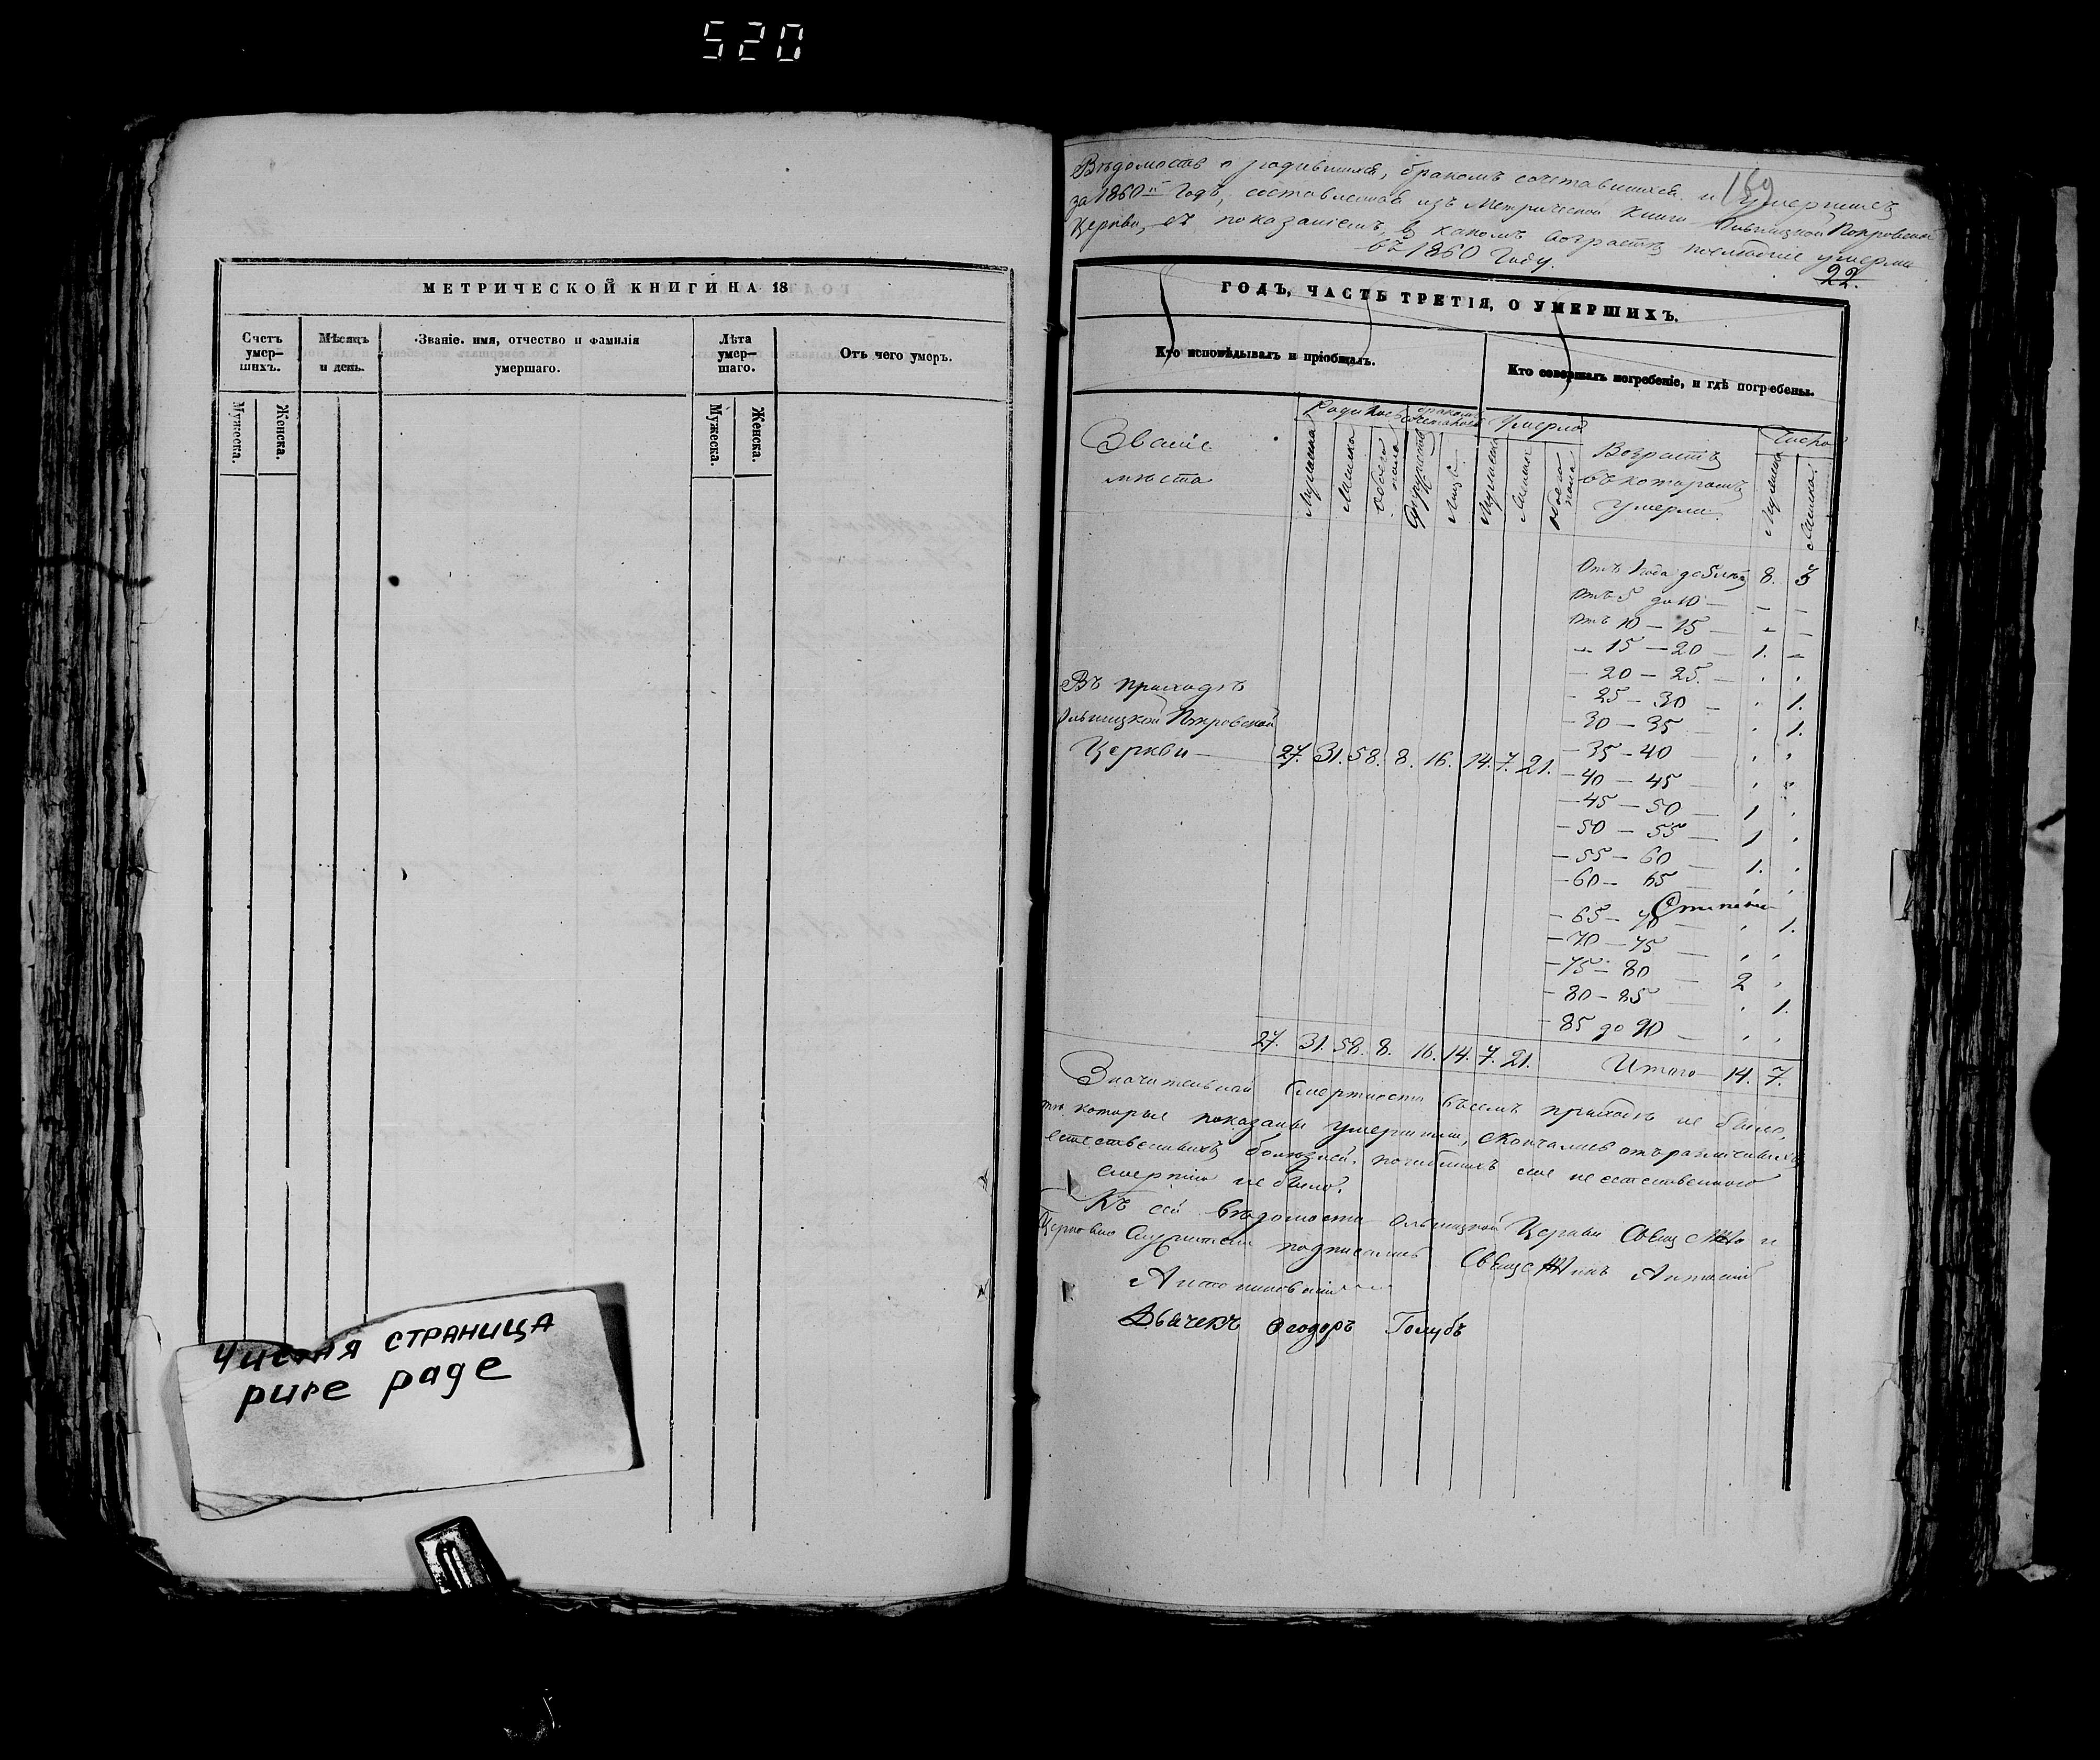 520
МЕТРИЧЕСКОЙ КНИГИ НА 18
Счетъ умер-шихъ.
Мѣсяцъ и день.
Званіе. имя, отчество и фамилія умершаго.
Лѣта умер-шаго.
Отъ чего умеръ.
Мужеска.
Женска.
Мужеска.
Женска.
Чистая страница
pure page
Вѣдомость о родившихся, бракомъ сочетавшихся и умершихъ
за 1860й Годъ, составленная изъ Метрической книги Покровской
Церкви, съ показаніемъ, въ какомъ возрастѣ послѣдніе умерли
въ 1860 Году.
169
22.
ГОДЪ, ЧАСТЬ ТРЕТІЯ, О УМЕРШИХЪ.
Кто исповѣдывалъ и пріобщалъ.
Кто совершалъ погребеніе, и гдѣ погребены.
Званіе
мѣста
Родилось
бракомъ сочеталось
Умерло
Возрастъ
въ которомъ
умерли.
Число
Мужеска
Женска
Обоего пола
Супружествъ
Лицъ.
Мужеска
Женска
Обоего пола
Мужеска
Женска
Отъ 1 года до 5 лѣтъ 8. 3
отъ 5 до 10 — – –
отъ 10 — 15 — – –
– 15 — 20 — 1. –
– 20 — 25. — " "
– 25 — 30 — " 1.
– 30 — 35 " 1.
– 35 – 40 — " "
– 40 — 45 — " "
– 45 — 50 — 1 "
– 50 — 55 — 1 "
– 55 — 60 — 1. "
– 60 — 65 — " "
– 65 — 70 — " 1.
– 70 — 75 — " "
– 75 — 80 — 2 "
– 80 — 85 " 1.
– 85 до 90 — " "
Въ приходѣ
Покровской
Церкви — 27. 31. 58. 8. 16. 14. 7. 21.
27. 31. 58. 8. 16. 14. 7. 21. Итого 14. 7.
Значительной Смертности въ семъ приходѣ не было,
которые показаны умершими, скончались отъ различныхъ
естественныхъ болѣзней, погибшихъ не естественного
смертію не было.
Къ сей вѣдомости Церкви
подписались Антоній
Дьячекъ Ѳеодоръ Голубъ